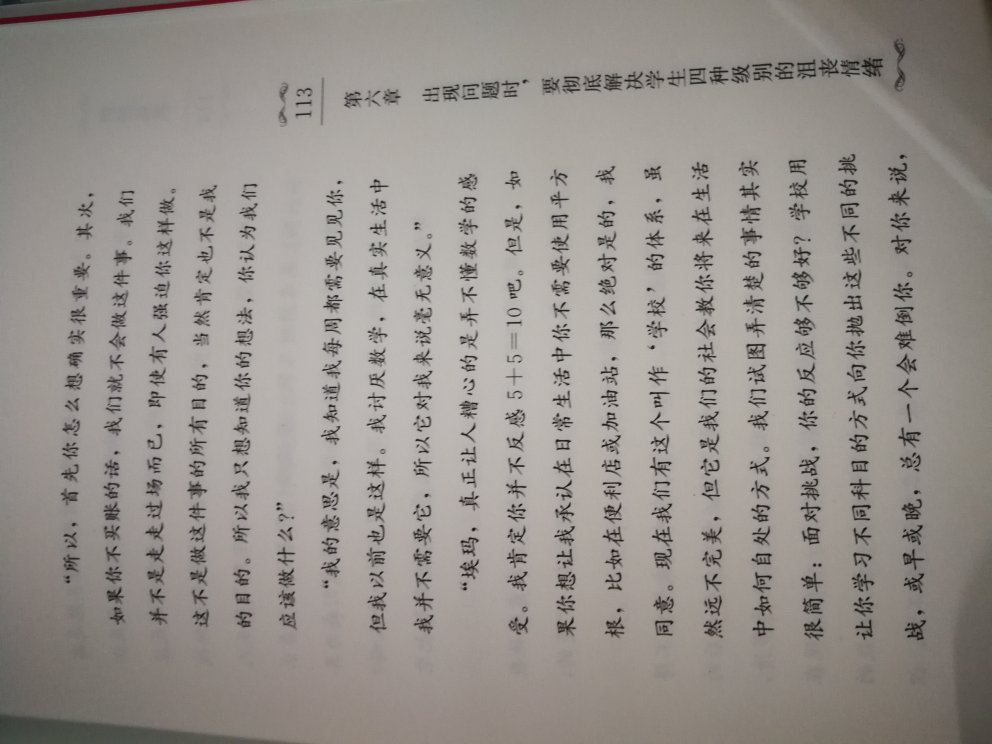 “所以，首先你怎么想确实很重要。其次，
如果你不买账的话，我们就不会做这件事。我们
并不是走走过场而已，即使有人强迫你这样做。
这不是做这件事的所有目的，当然肯定也不是我
的目的。所以我只想知道你的想法，你认为我们
应该做什么？”
“我的意思是，我知道我每周都需要见见你，
但我以前也是这样。我讨厌数学，在真实生活中
我并不需要它，所以它对我来说毫无意义。”
“埃玛，真正让人糟心的是弄不懂数学的感
受。我肯定你并不反感5＋5＝10吧。但是，如
果你想让我承认在日常生活中你不需要使用平方
根，比如在便利店或加油站，那么绝对是的，我
同意。现在我们有这个叫作‘学校’的体系，虽
然远不完美，但它是我们的社会教你将来在生活
中如何自处的方式。我们试图弄清楚的事情其实
很简单：面对挑战，你的反应够不够好？学校用
让你学习不同科目的方式向你抛出这些不同的挑
战，或早或晚，总有一个会难倒你。对你来说，
113
第六章
出现问题时，要彻底解决学生四种级别的沮丧情绪